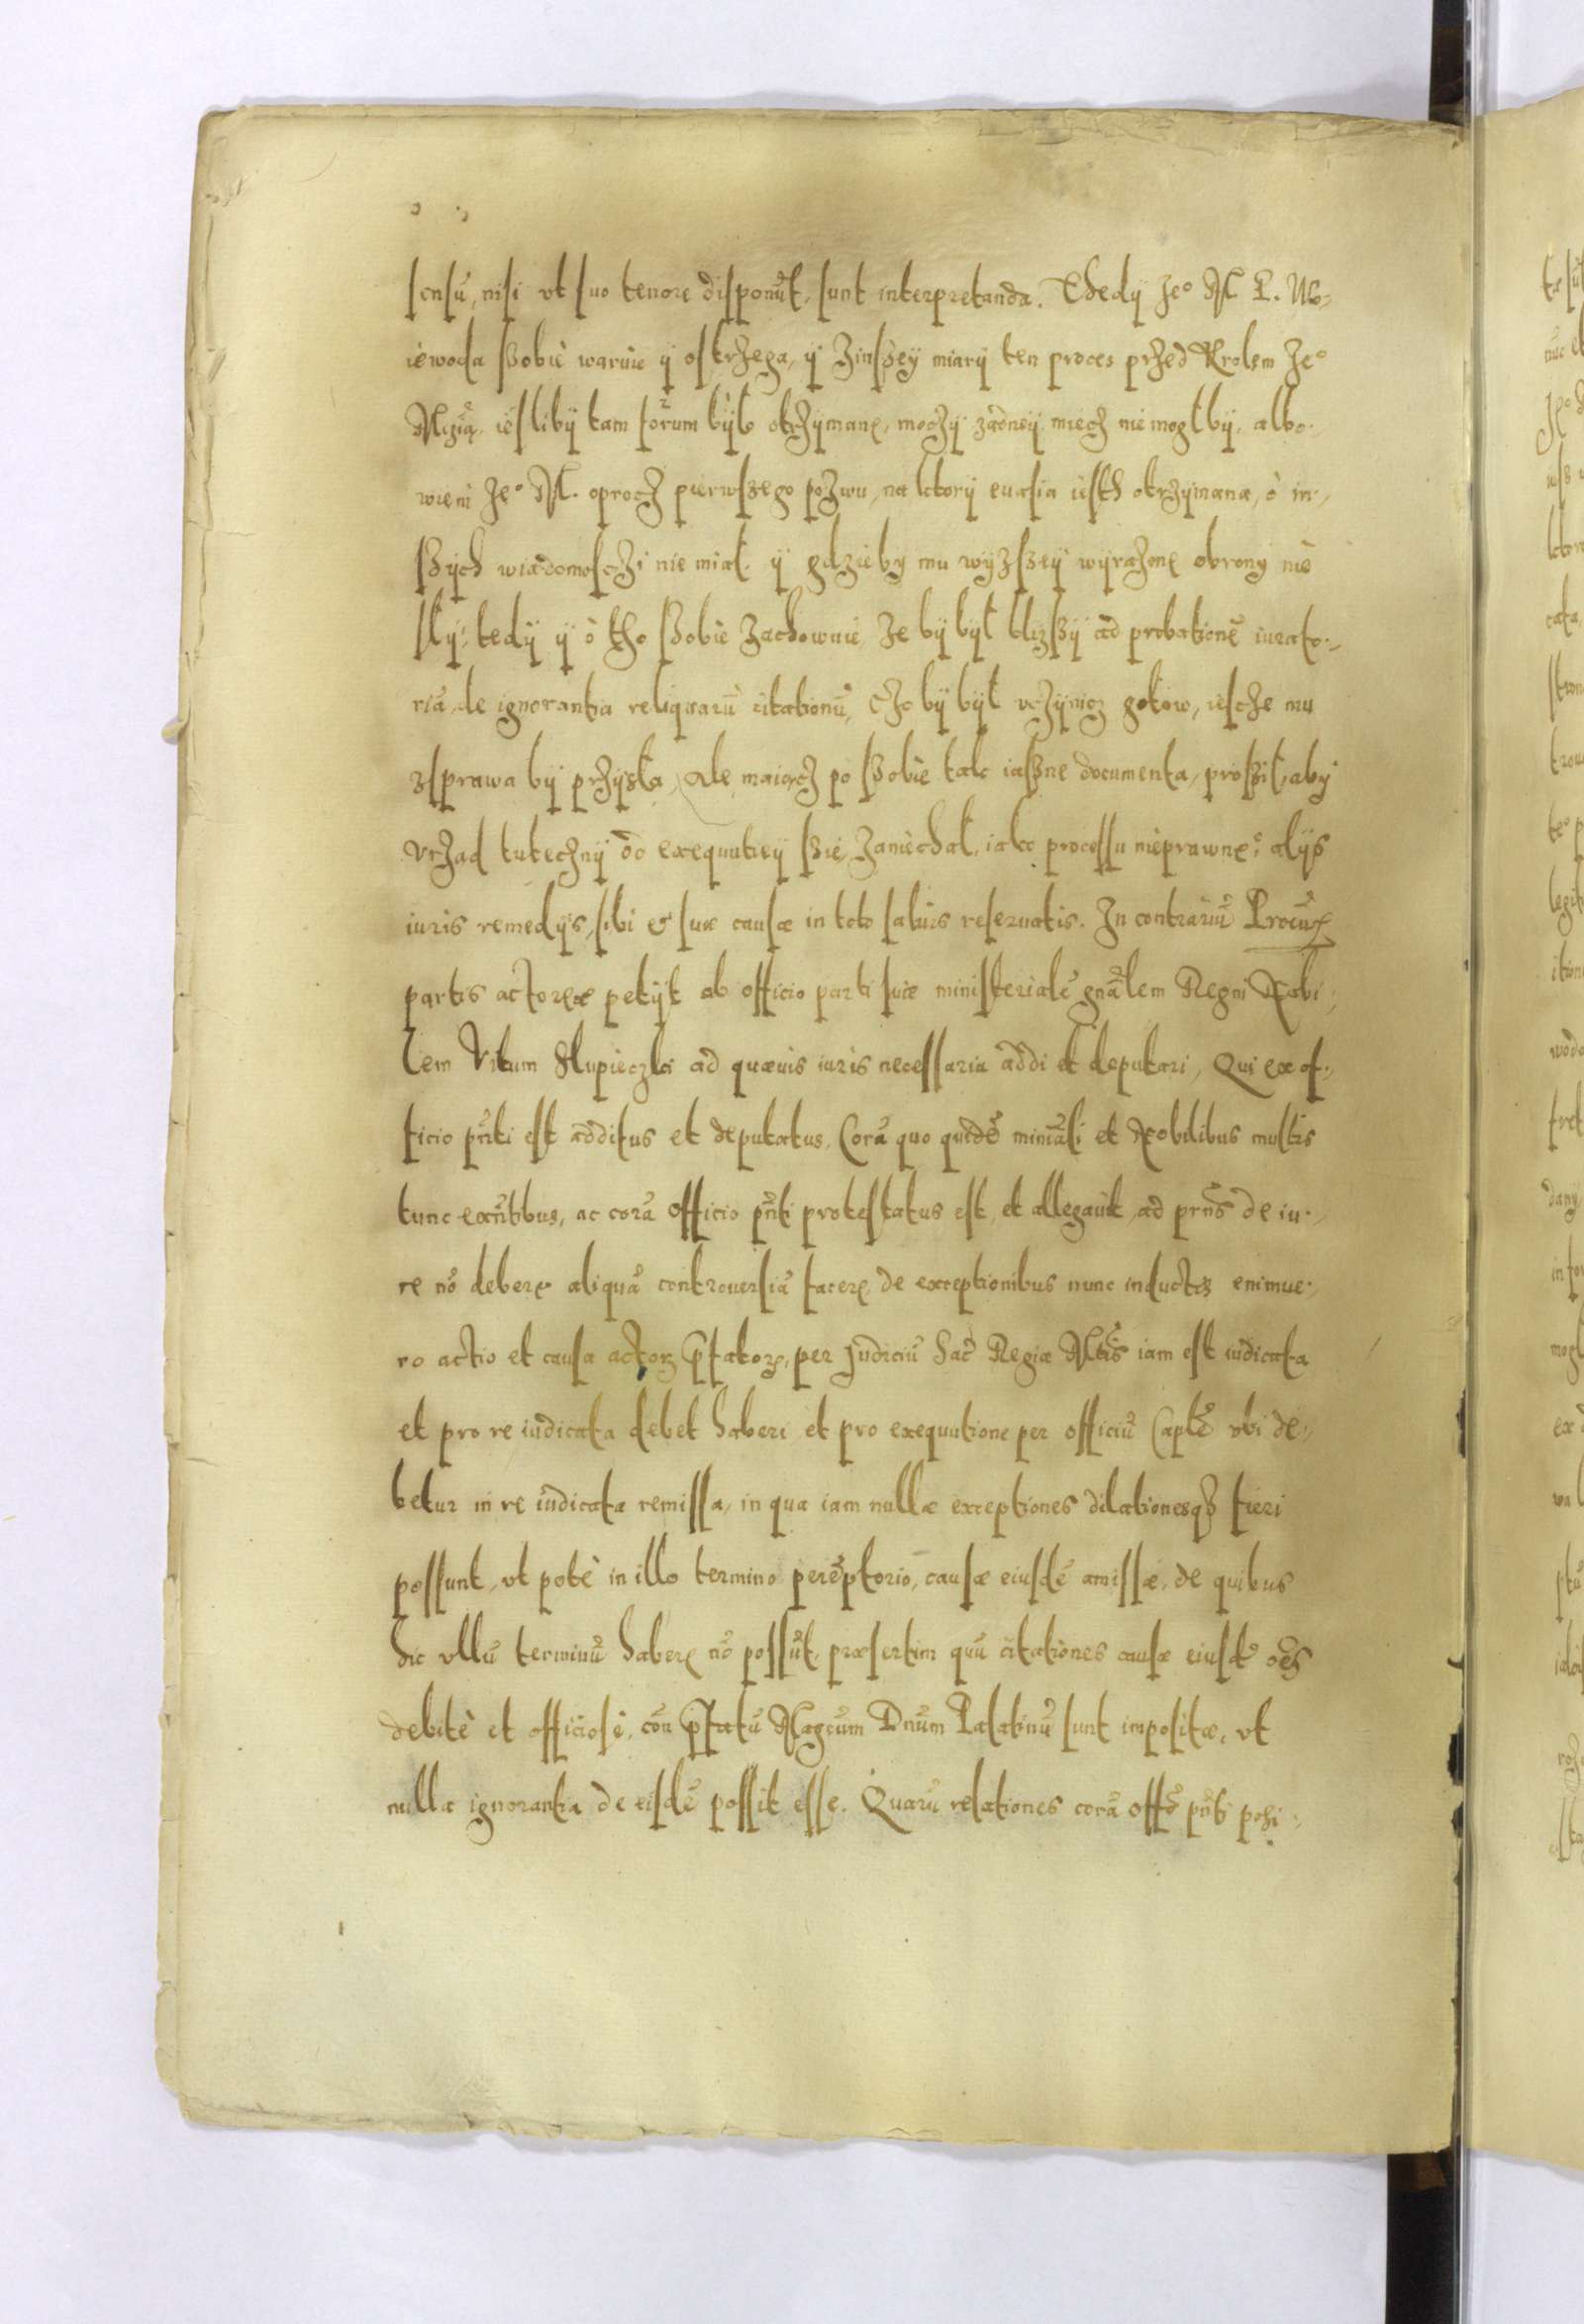 sensũ, nisi vt suo tenore disponũt, sunt interpretanda. Thedÿ Jeº M. P. Wo-
iewoda szobie waruie ÿ ostrzega, ÿ Zinszeÿ miarÿ ten proces przed Krolem Jeº
Mczią. iesliby tam forum bÿło otrzÿmane, moczÿ żadneÿ miecz nie mogł bÿ, albo-
wiem Jeº M. oprocz pierwszego pozwu, na ktorÿ euasia iesth otrzÿmana, ò in-
szÿch wiadomosczi nie miał. ÿ gdzieby mu wÿzszeÿ wÿrazone obrony nie
szłÿ, tedÿ ÿ ò tho szobie zachowuie, ze bÿ bÿł bliszszÿ ad probationẽ iurato-
riã, de ignorantia reliquarũ citationũ, czo bÿ bÿł vczÿnicz gotow, iescze mu
zsprawa bÿ przÿszła, Ale maiącz po szobie tak iaszne documenta, prosził, aby
vrzad tutecznÿ od exequutieÿ szie zaniechał, iako processu nieprawneº, alÿs
iuris remedÿs, sibi & suæ causæ in toto saluis reseruatis. In contrariũ Procur
partis actoreæ petÿt ab officio parti suæ ministerialẽ gnãlem Regni Nobi-
lem Vitum Słupieczki ad quæuis iuris necessaria addi et deputari, Qui ex of-
ficio pñti est additus et deputatus, Corã quo quidẽ miniãli et Nobilibus multis
tunc exñtibus, ac corã officio pñti protestatus est, et allegauit, ad prñs de iu-
re nõ debere aliquã controuersiã facere, de exceptionibus nunc inductis enimue-
ro actio et causa actorꝫ p̃fatorꝫ, per Judiciũ Sac̃ Regiæ Mtis iam est iudicata
et pro re iudicata debet haberi et pro exequutione per officiũ Captẽ vbi de-
betur in re iudicata remissa, in qua iam nullæ exceptiones dilationesqꝫ fieri
possunt, vt potè in illo termino perẽptorio, causæ eiusdẽ amissæ, de quibus
hic vllũ terminũ habere nõ possũt, præsertim quũ citationes causæ eiusdẽ oẽs
debitè et officiosè, cõn p̃fatũ Magcũm Dnũm Palatinũ sunt impositæ, vt
nulla ignorantia de eisdẽ possit esse. Quarũ relationes corã offõ pñti posi-